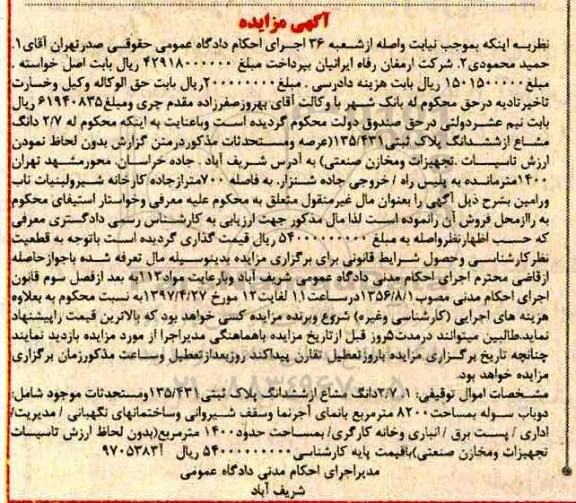 آگهی مزایده
نظربه اینکه بموجب نیابت واصله ازشعبه ۳۶ اجرای احکام دادگاه عمومی حقوقی صدرتهران آقای۱.
حمید محمودی۲. شرکت ارمغان رفاه ایرانیان بپرداخت مبلغ ۴۲۹۱۸۰۰۰۰۰۰ ریال بابت اصل خواسته .
مبلغ۱۵۰۱۵۰۰۰۰۰ ریال بابت هزینه دادرسی . مبلغ۲۰۰۰۰۰۰۰۰ریال بابت حق الوکاله وکیل وخسارت
تاخیرتادیه درحق محکوم له بانک شهر با وکالت آقای بهروزصفرزاده مقدم چری ومبلغ۶۱۹۴۰۸۳۵ ریال
بابت نیم عشردولتی درحق صندوق دولت محکوم گردیده است وباعنایت به اینکه محکوم له ۲/۷ دانگ
مشاع ازششدانگ پلاک ثبتی۱۳۵/۴۳۱(عرصه ومستحدثات مذکوردرمتن گزارش بدون لحاظ نمودن
ارزش تاسیسات .تجهیزات ومخازن صنعتی) به آدرس شریف آباد . جاده خراسان. محورمشهد تهران
۱۴۰۰مترمانده به پلیس راه / خروجی جاده شنزار. به فاصله ۷۰۰مترازجاده کارخانه شیرولبنیات ناب
ورامین بشرح ذیل آگهی را بعنوان مال غیرمنقول متعلق به محکوم علیه معرفی وخواستار استیفای محکوم
به راازمحل فروش آن رانموده است لذا مال مذکور جهت ارزیابی به کارشناس رسمی دادگستری معرفی
که حسب اظهارنظرواصله به مبلغ ۵۴۰۰۰۰۰۰۰۰۰ ریال قیمت گذاری گردیده است باتوجه به قطعیت
نظرکارشناسی وحصول شرایط قانونی برای برگزاری مزایده بدینوسیله مال تعرفه شده باجوازحاصله
ازقاضی محترم اجرای احکام مدنی دادگاه عمومی شریف آباد وبارعایت مواد۱۱۲به بعد ازفصل سوم قانون
اجرای احکام مدنی مصوب۱۳۵۶/۸/۱درساعت۱۱ لغایت۱۲ مورخ ۱۳۹۷/۴/۲۷به نسبت محکوم به بعلاوه
هزینه های اجرایی (کارشناسی وغیره) شروع وبرنده مزایده کسی خواهد بود که بالاترین قیمت راپیشنهاد
نماید.طالبین میتوانند درمدت۵روز قبل ازتاریخ مزایده باهماهنگی مدیراجرا از مورد مزایده بازدید نمایند
چنانچه تاریخ برگزاری مزایده باروزتعطیل تقارن پیداکند روزبعدازتعطیل وساعت مذکورزمان برگزاری
مزایده خواهد بود.
مشخصات اموال توقیفی: ۲/۷.۱دانگ مشاع ازششدانگ پلاک ثبتی ۱۳۵/۴۳۱ومستحدثات موجود شامل:
دوباب سوله بمساحت۸۲۰۰ مترمربع بانمای آجرنما وسقف شیروانی وساختمانهای نگهبانی / مدیریت/
اداری / پست برق / انباری وخانه کارگری/ بمساحت حدود۱۴۰۰ مترمربع(بدون لحاظ ارزش تاسیسات
تجهیزات ومخازن صنعتی)باقیمت پایه کارشناسی۵۴۰۰۰۰۰۰۰۰۰ ریال آ۹۷۰۵۳۸۳
مدیراجرای احکام مدنی دادگاه عمومی
شریف آباد